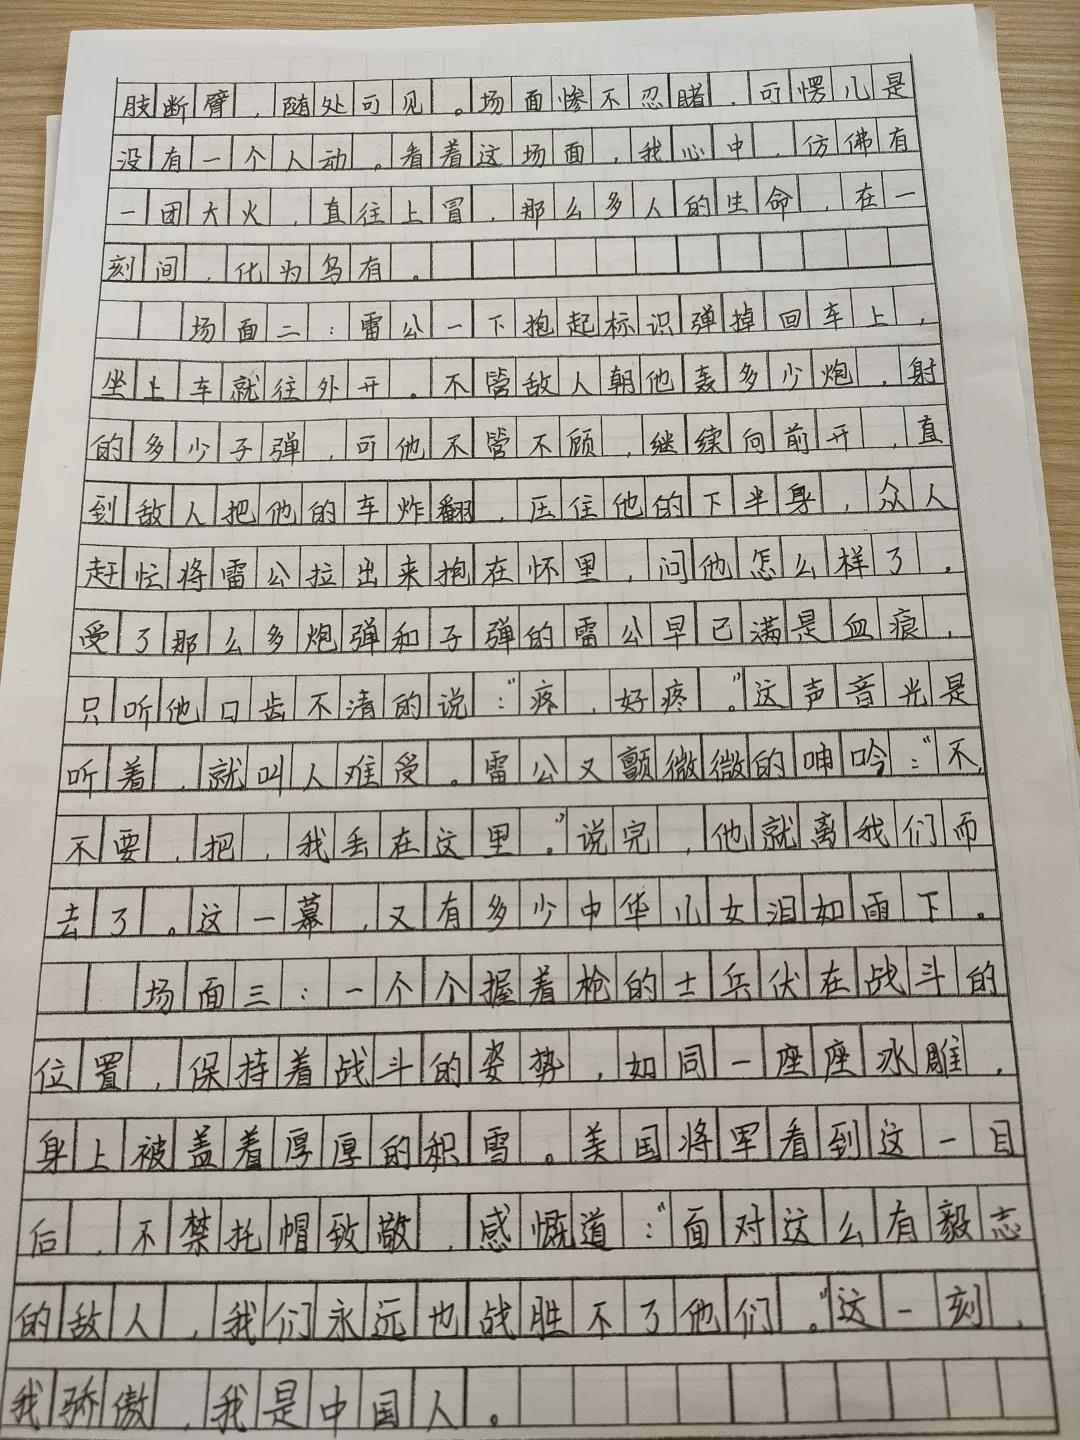 肢断臂，随处可见。场面惨不忍睹，可愣儿是
没有一个人动。看着这场面，我心中，仿佛有
一团大火，直往上冒，那么多人的生命，在一
刻间，化为乌有。
场面二：雷公一下抱起标识弹掉回车上，
坐上车就往外开。不管敌人朝他轰多少炮，射
的多少子弹，可他不管不顾，继续向前开，直
到敌人把他的车炸翻，压住他的下半身，众人
赶忙将雷公拉出来抱在怀里，问他怎么样了。
受了那么多炮弹和子弹的雷公早已满是血痕，
只听他口齿不清的说：“疼，好疼。”这声音光是
听着，就叫人难受。雷公又颤微微的呻吟：“不，
不要，把，我丢在这里。”说完，他就离我们而
去了。这一幕，又有多少中华儿女泪如雨下。
场面三：一个个握着枪的士兵伏在战斗的
位置，保持着战斗的姿势，如同一座座冰雕，
身上被盖着厚厚的积雪。美国将军看到这一目
后，不禁托帽致敬，感慨道：“面对这么有毅志
的敌人，我们永远也战胜不了他们。”这一刻，
我骄傲，我是中国人。